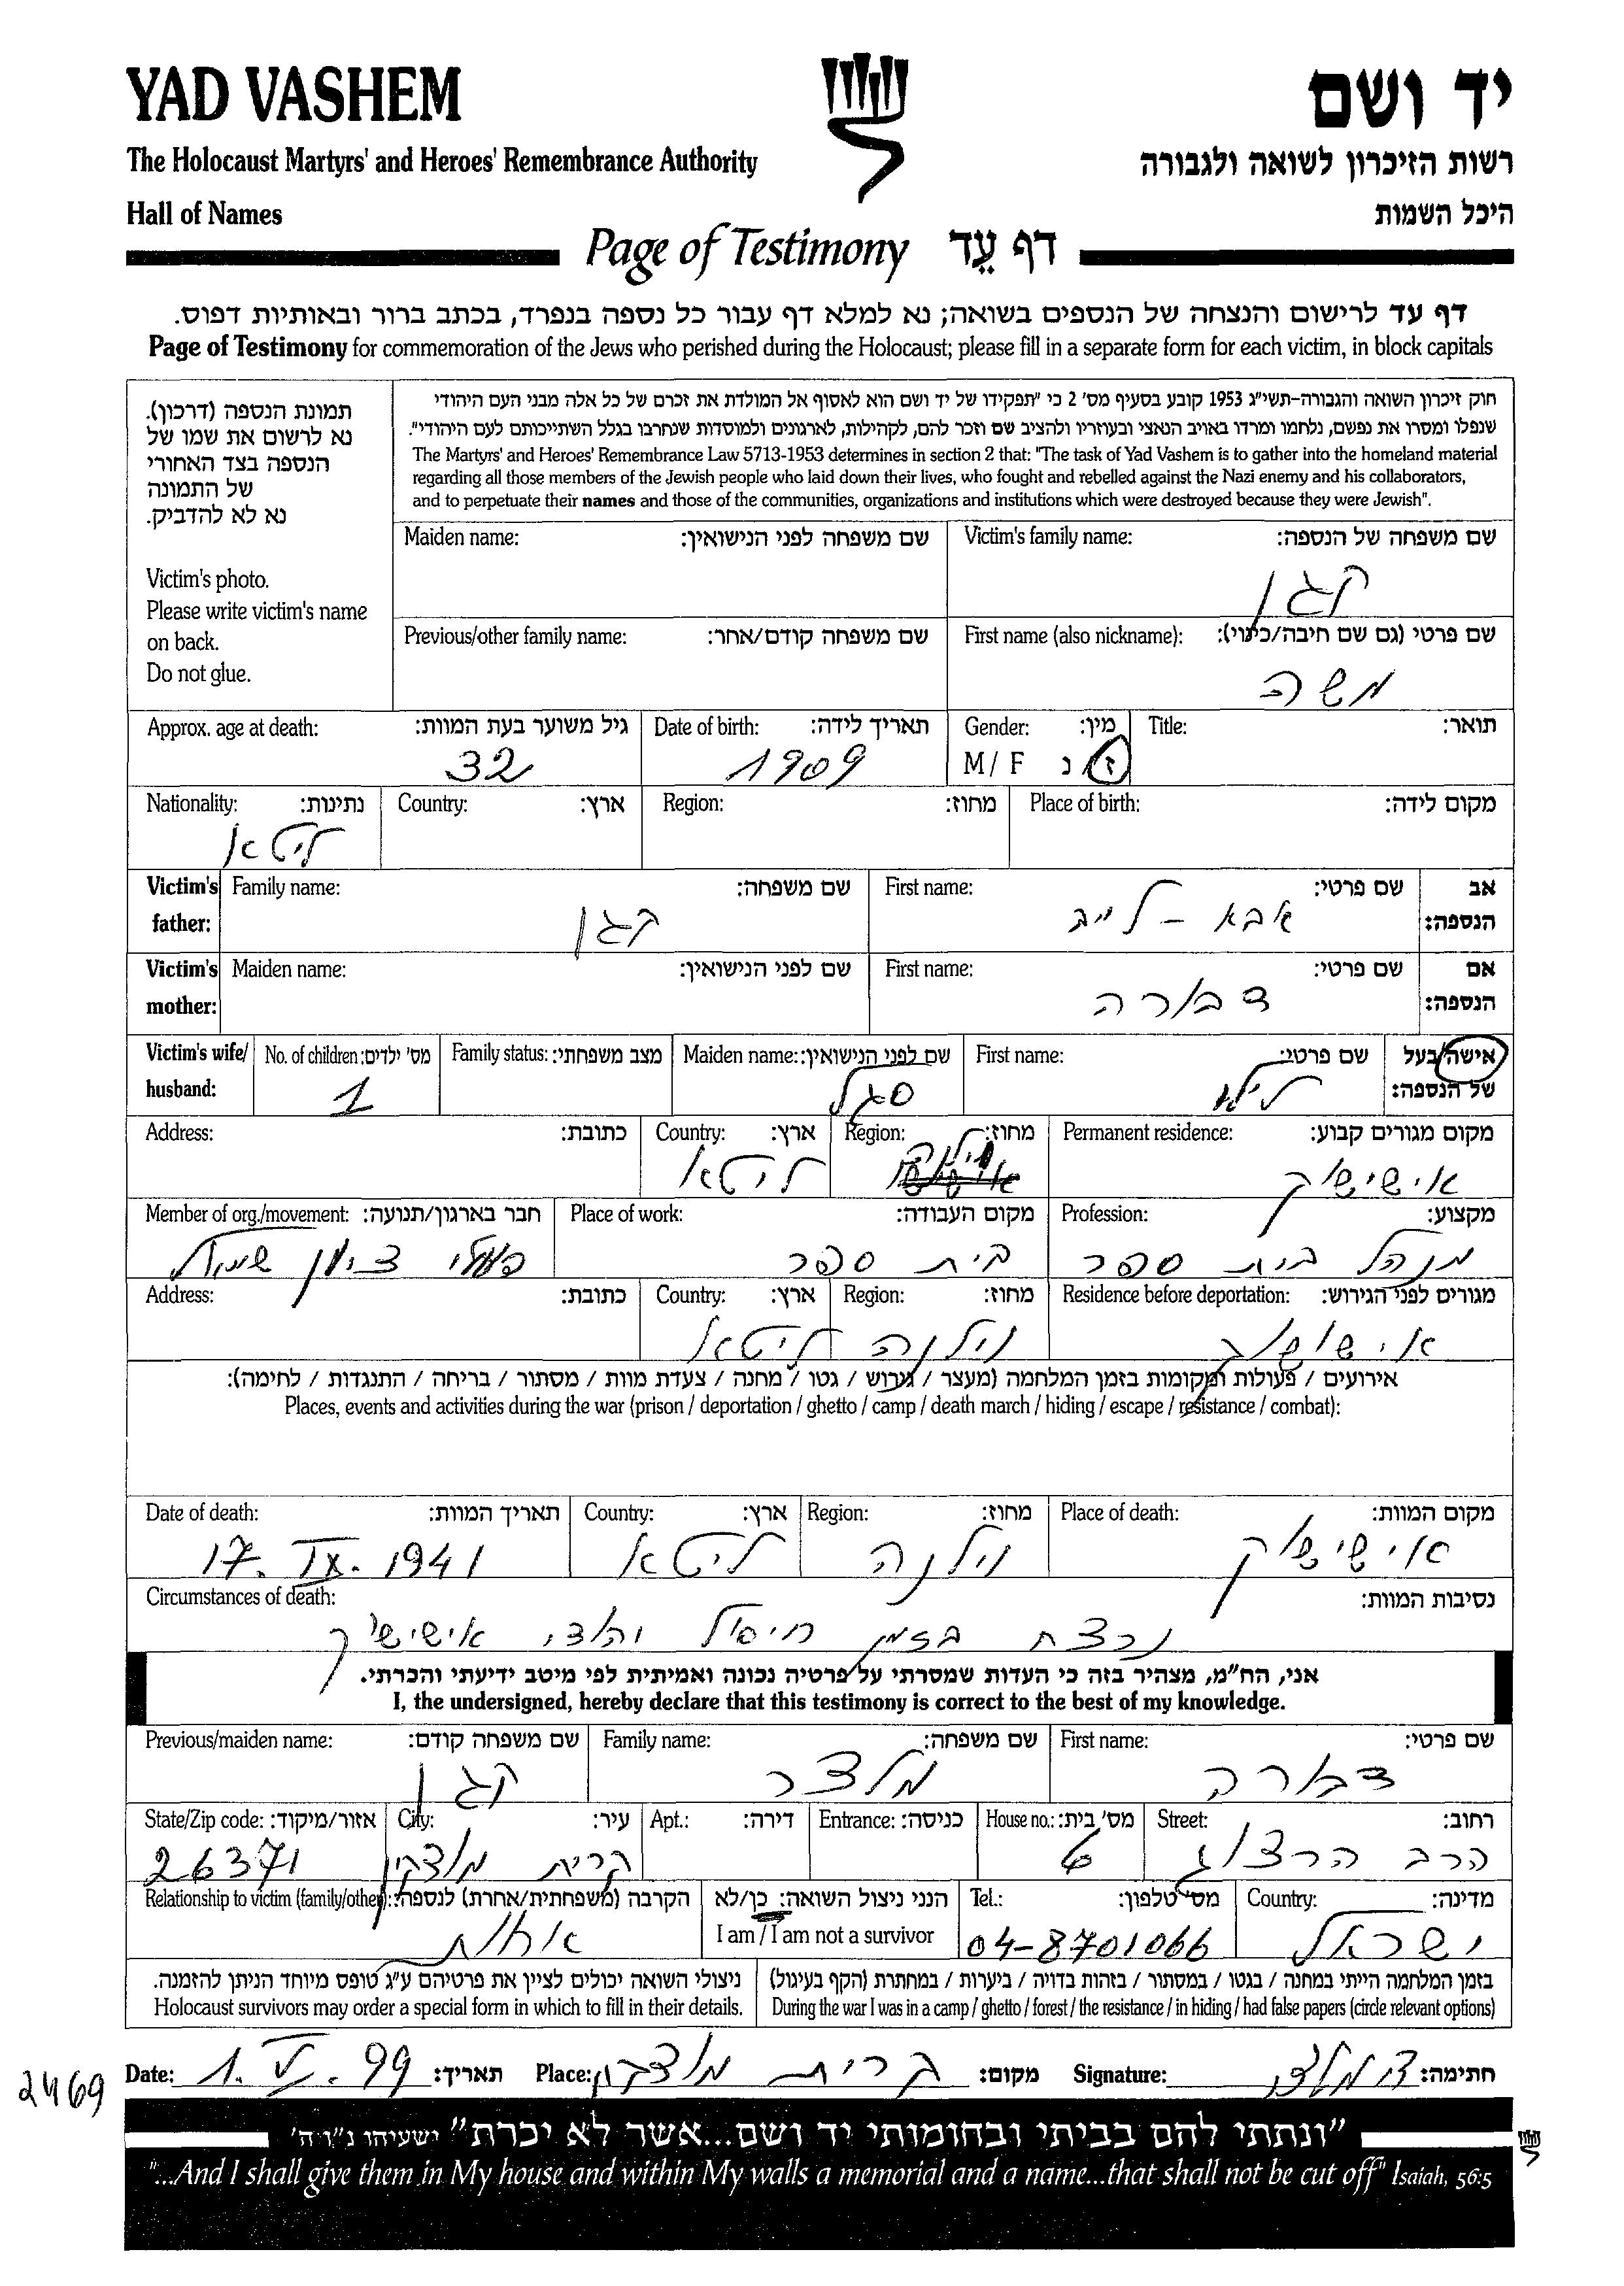 YAD VASHEM
יד ושם
The Holocaust Martyrs' and Heroes' Remembrance Authority
רשות הזיכרון לשואה ולגבורה
Hall of Names
היכל השמות
Page of Testimony דף עֵד
דף עד לרישום והנצחה של הנספים בשואה; נא למלא דף עבור כל נספה בנפרד, בכתב ברור ובאותיות דפוס.
Page of Testimony for commemoration of the Jews who perished during the Holocaust; please fill in a separate form for each victim, in block capitals
תמונת הנספה (דרכון).
נא לרשום את שמו של
הנספה בצד האחורי
של התמונה
נא לא להדביק.
Victim's photo.
Please write victim's name
on back.
Do not glue.
חוק זיכרון השואה והגבורה-תשי"ג 1953 קובע בסעיף מס' 2 כי "תפקידו של יד ושם הוא לאסוף אל המולדת את זכרם של כל אלה מבני העם היהודי
שנפלו ומסרו את נפשם, נלחמו ומרדו באויב הנאצי ובעוזריו ולהציב שם וזכר להם, לקהילות, לארגונים ולמוסדות שנחרבו בגלל השתייכותם לעם היהודי".
The Martyrs' and Heroes' Remembrance Law 5713-1953 determines in section 2 that: "The task of Yad Vashem is to gather into the homeland material
regarding all those members of the Jewish people who laid down their lives, who fought and rebelled against the Nazi enemy and his collaborators,
and to perpetuate their names and those of the communities, organizations and institutions which were destroyed because they were Jewish".
Victim's family name: שם משפחה של הנספה:
קגן
Maiden name: שם משפחה לפני הנישואין:
First name (also nickname): שם פרטי (גם שם חיבה/כינוי):
משה
Previous/other family name: שם משפחה קודם/אחר:
Title: תואר:
Gender: מין:
M / F ז / נ
Date of birth: תאריך לידה:
1909
Approx. age at death: גיל משוער בעת המוות:
32
Place of birth: מקום לידה:
Region: מחוז:
Country: ארץ:
Nationality: נתינות:
ליטא
Victim's father: אב הנספה:
First name: שם פרטי:
אבא - לייב
Family name: שם משפחה:
קגן
Victim's mother: אם הנספה:
First name: שם פרטי:
דבורה
Maiden name: שם לפני הנישואין:
Victim's wife/ husband: אישה/בעל של הנספה:
First name: שם פרטי:
Maiden name: שם לפני הנישואין:
סגל
Family status: מצב משפחתי:
No. of children: מס' ילדים:
1
Permanent residence: מקום מגורים קבוע:
אישישוק
Region: מחוז:
וילנה
Country: ארץ:
ליטא
Address: כתובת:
Profession: מקצוע:
מנהל בית ספר
Place of work: מקום העבודה:
בית ספר
Member of org./movement: חבר בארגון/תנועה:
פועלי ציון שמאל
Residence before deportation: מגורים לפני הגירוש:
אישישוק
Region: מחוז:
וילנה
Country: ארץ:
ליטא
Address: כתובת:
אירועים / פעולות ומקומות בזמן המלחמה (מעצר / גרוש / גטו / מחנה / צעדת מוות / מסתור / בריחה / התנגדות / לחימה):
Places, events and activities during the war (prison / deportation / ghetto / camp / death march / hiding / escape / resistance / combat):
Place of death: מקום המוות:
אישישוק
Region: מחוז:
וילנה
Country: ארץ:
ליטא
Date of death: תאריך המוות:
17. IX. 1941
Circumstances of death: נסיבות המוות:
נרצח בזמן חיסול יהודי אישישוק
אני, הח"מ, מצהיר בזה כי העדות שמסרתי על פרטיה נכונה ואמיתית לפי מיטב ידיעתי והכרתי.
I, the undersigned, hereby declare that this testimony is correct to the best of my knowledge.
First name: שם פרטי:
דבורה
Family name: שם משפחה:
מלצר
Previous/maiden name: שם משפחה קודם:
קגן
Street: רחוב:
הרב הרצוג
House no.: מס' בית:
6
Entrance: כניסה:
Apt.: דירה:
City: עיר:
קרית מוצקין
State/Zip code: אזור/מיקוד:
26371
Country: מדינה:
ישראל
Tel.: מס' טלפון:
04-8701066
הנני ניצול השואה: כן/לא
I am / I am not a survivor
Relationship to victim (family/other): הקרבה (משפחתית/אחרת) לנספה:
אחות
בזמן המלחמה הייתי במחנה / בגטו / במסתור / בזהות בדויה / ביערות / במחתרת (הקף בעיגול)
During the war I was in a camp / ghetto / forest / the resistance / in hiding / had false papers (circle relevant options)
ניצולי השואה יכולים לציין את פרטיהם ע"ג טופס מיוחד הניתן להזמנה.
Holocaust survivors may order a special form in which to fill in their details.
Date: 1. VI. 99 תאריך:
Place: קרית מוצקין מקום:
Signature: ד. מלצר חתימה:
2469
"ונתתי להם בביתי ובחומותי יד ושם...אשר לא יכרת" ישעיהו נ"ו ה'
"...And I shall give them in My house and within My walls a memorial and a name...that shall not be cut off" Isaiah, 56:5